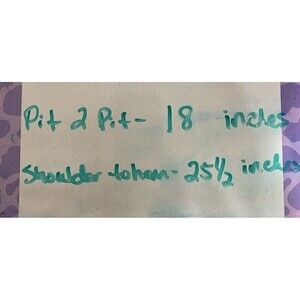 Pit 2 Pit - 18 inches
Shoulder to hem - 25 1/2 inches